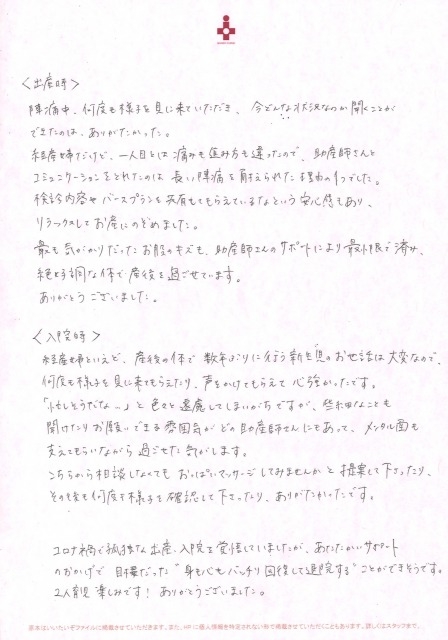 〈出産時〉
陣痛中、何度も様子を見に来ていただき、今どんな状況なのか聞くことが
できたのは、ありがたかった。
経産婦だけど、一人目とは痛みも進み方も違ったので、助産師さんと
コミュニケーションをとれたのは長い陣痛を耐えられた理由の1つでした。
検診内容やバースプランを共有してもらえているなという安心感もあり、
リラックスしてお産にのぞめました。
最も気がかりだったお股のキズも、助産師さんのサポートにより最小限で済み、
絶好調な体で産後を過ごせています。
ありがとうございました。
〈入院時〉
経産婦といえど、産後の体で数年ぶりに行う新生児のお世話は大変なので、
何度も様子を見に来てもらえたり、声をかけてもらえて心強かったです。
「忙しそうだな…」と色々と遠慮してしまいがちですが、些細なことも
聞けたりお願いできる雰囲気がどの助産師さんにもあって、メンタル面も
支えてもらいながら過ごせた気がします。
こちらから相談しなくてもおっぱいマッサージしてみませんかと提案して下さったり、
その後も何度も様子を確認して下さったり、ありがたかったです。
コロナ禍で孤独な出産、入院を覚悟していましたが、あたたかいサポート
のおかげで目標だった"身も心もバッチリ回復して退院する"ことができそうです。
2人育児楽しみです！ありがとうございました。
原本はいいたいぞファイルに掲載させていただきます。また、HPに個人情報を特定されない形で掲載させていただくこともあります。詳しくはスタッフまで。